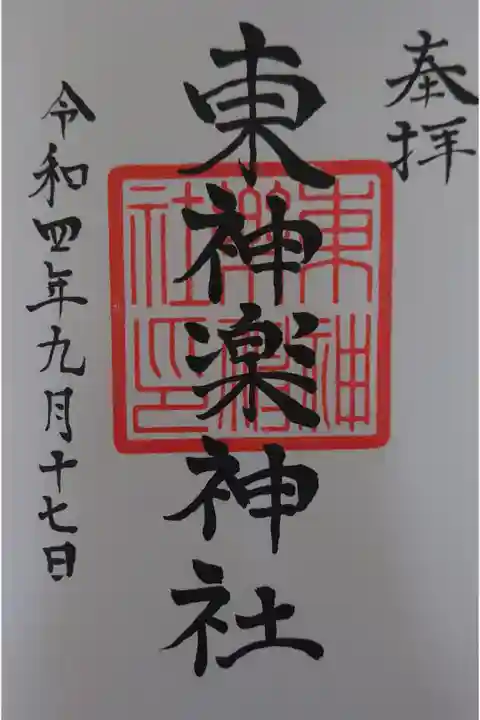 奉拝
東神楽神社
東神
楽神
社印
令和四年九月十七日